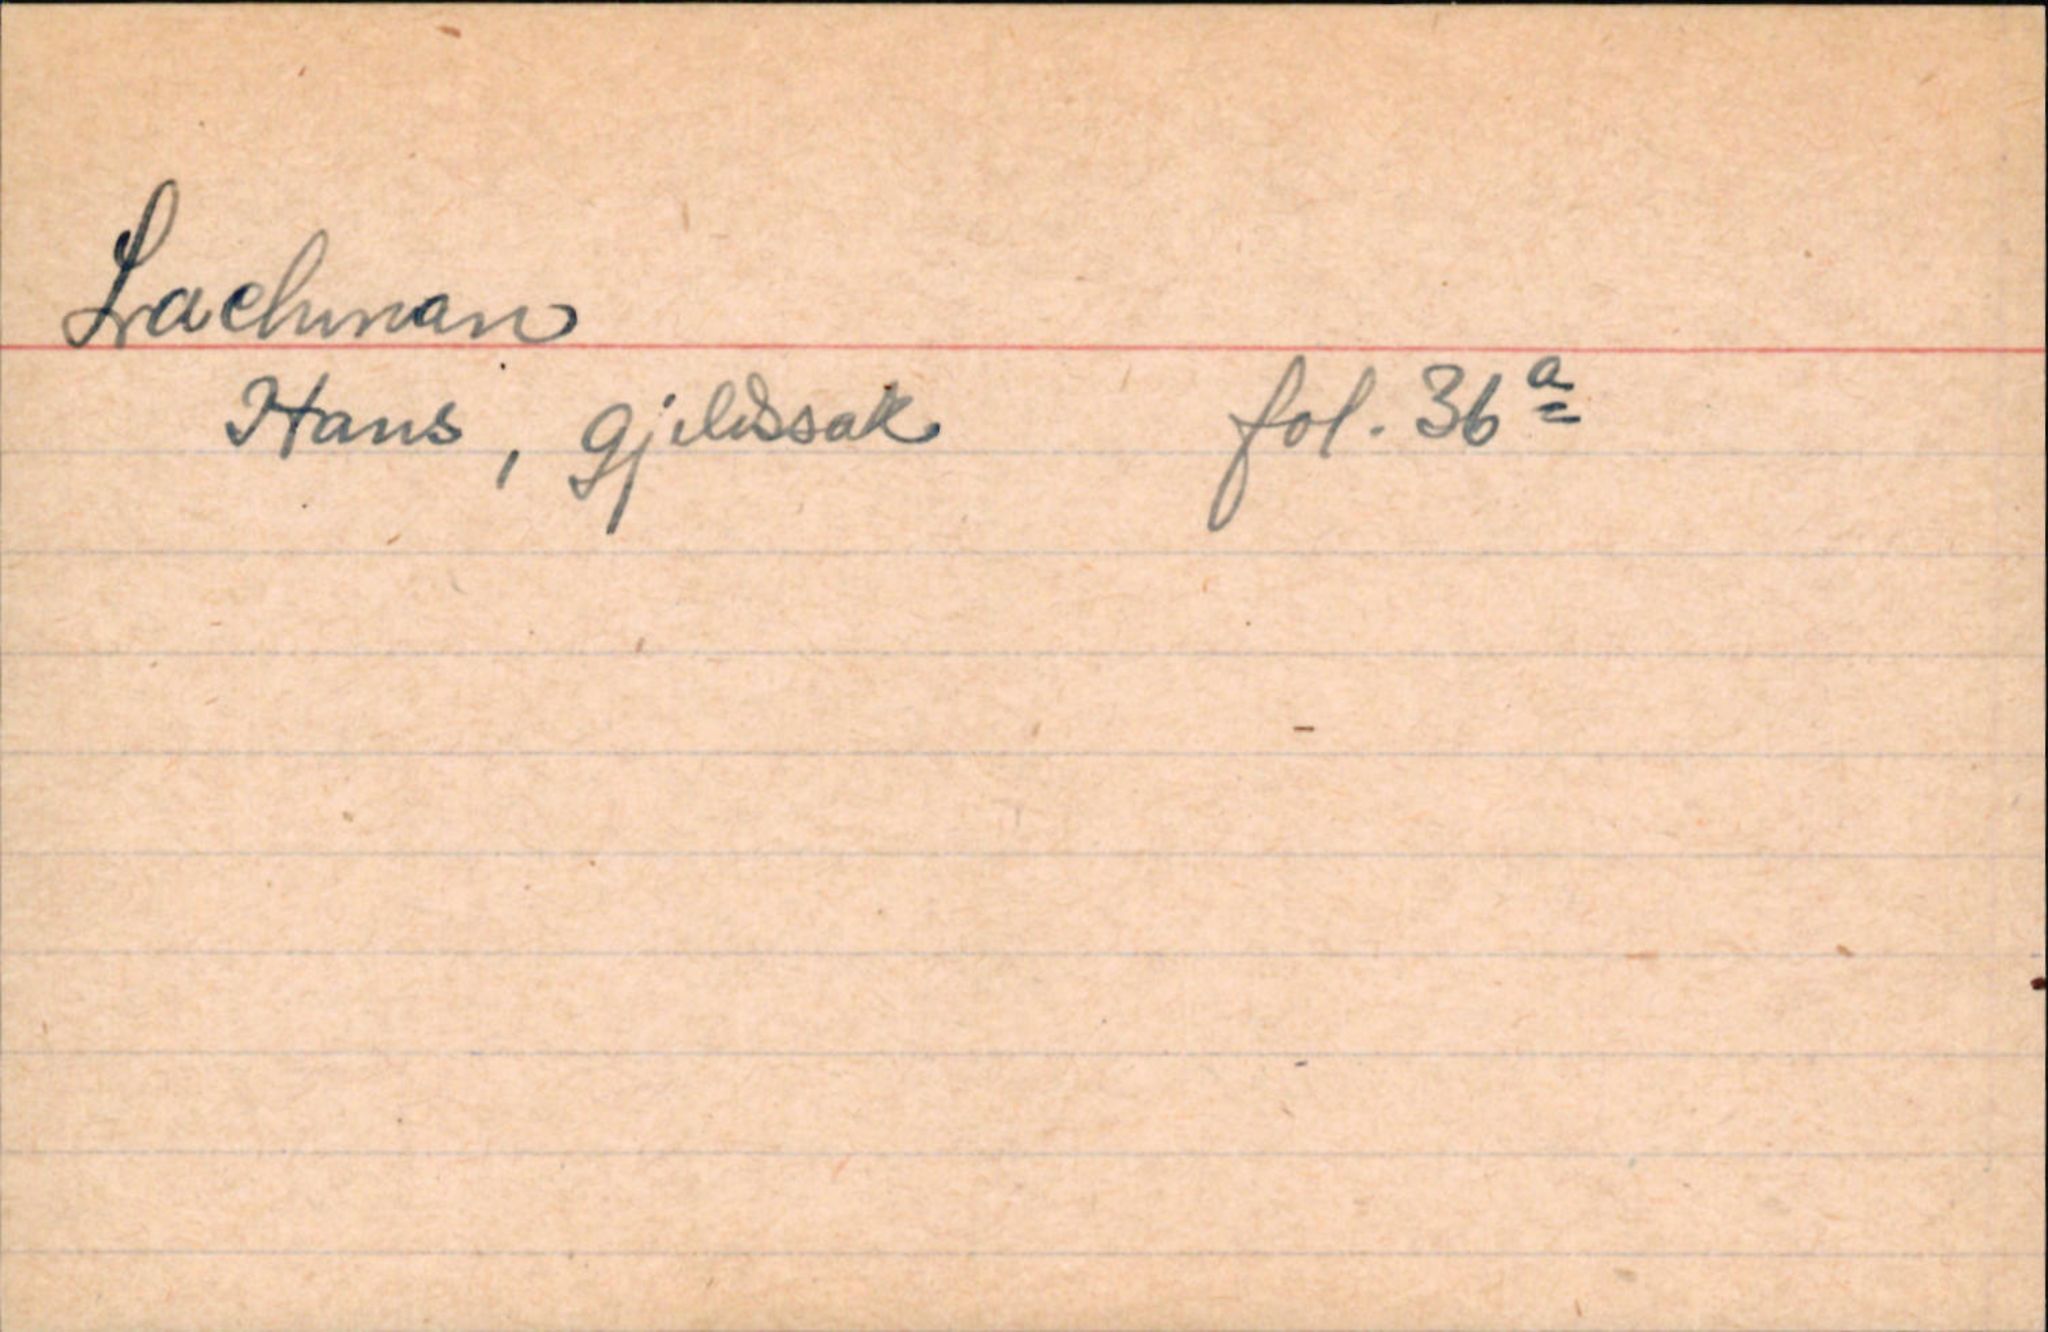 Lachman
Hans, gjeldssak fol. 36a